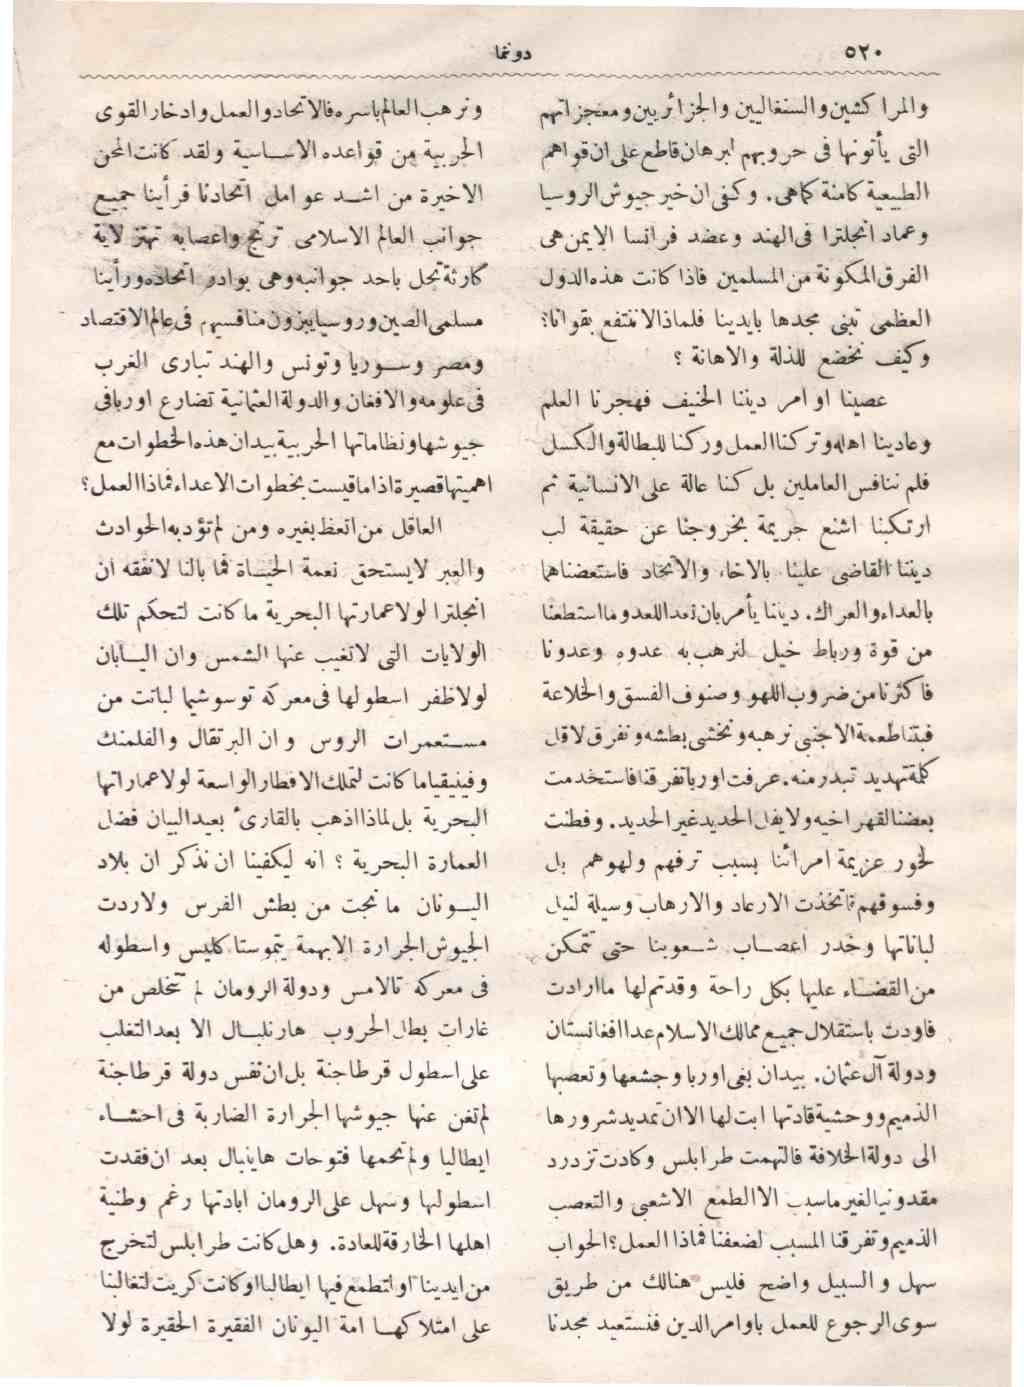 ٥٢٠
دوننما
والمراكشيين والسنغاليين والجزائريين ومعجزاتهم
التى يأتونها فى حروبهم لبرهان قاطع على ان قواهم
الطبيعية كامنة كماهى. وكفى ان خير جيوش الروسيا
وعماد انجلترا فى الهند وعضد فرانسا الايمن هى
الفرق المكونة من المسلمين فاذا كانت هذه الدول
العظمى تبنى مجدها بايدينا فلماذا لا ننتفع بقوانا؟
وكيف نخضع للذلة والاهانة ؟
عصينا اوامر ديننا الحنيف فهجرنا العلم
وعادينا اهله وتركنا العمل وركنا للبطالة والكسل
فلم ننافس العاملين بل كنا عالة على الانسانية ثم
ارتكبنا اشنع جريمة بخروجنا عن حقيقة لب
ديننا القاضى علينا بالاخاء والاتحاد فاستعضناهما
بالعداء والعراك. ديننا يأمر بان نعد للعدو ما استطعنا
من قوة ورباط خيل لنرهب به عدوه وعدونا
فاكثرنا من ضروب اللهو وصنوف الفسق والخلاعة
فبتنا طعمة الاجنبى نرهبه ونخشى بطشه ونفرق لاقل
كلمة تهديد تبدر منه. عرفت اوربا تفرقنا فاستخدمت
بعضنا لقهر اخيه ولا يفل الحديد غير الحديد. وفطنت
لخور عزيمة امرائنا بسبب ترفهم ولهوهم بل
وفسوقهم فاتخذت الارعاد والارهاب وسيلة لنيل
لباناتها وخدر اعصاب شعوبنا حتى تتمكن
من القضاء عليها بكل راحة وقد تم لها ما ارادت
فاودت باستقلال جميع ممالك الاسلام عدا افغانستان
ودولة آل عثمان. بيد ان بغى اوربا وجشعها وتعصبها
الذميم ووحشية قادتها ابت لها الا ان تمديد شرورها
الى دولة الخلافة فالتهمت طرابلس وكادت تزدرد
مقدونيا لغير ما سبب الا الطمع الاشعبى والتعصب
الذميم وتفرقنا المسبب لضعفنا فماذا العمل؟ الجواب
سهل والسبيل واضح فليس هنالك من طريق
سوى الرجوع للعمل باوامر الدين فنستعيد مجدنا
ونرهب العالم باسره فالاتحاد والعمل وادخار القوى
الحربية من قواعده الاساسية ولقد كانت المحن
الاخيرة من اشد عوامل اتحادنا فرأينا جميع
جوانب العالم الاسلامى ترتج واعصابه تهتز لاية
كارثة تحل باحد جوانبه وهى بوادر اتحاده ورأينا
مسلمى الصين وروسيا يبزون منافسيهم فى عالم الاقتصاد
ومصر وسوريا وتونس والهند تبارى الغرب
فى علومه والافغان والدولة العثمانية تضارع اوربا فى
جيوشها ونظاماتها الحربية بيد ان هذه الخطوات مع
اهميتها قصيرة اذا ما قيست بخطوات الاعداء فماذا العمل؟
العاقل من اتعظ بغيره ومن لم تؤدبه الحوادث
والعبر لا يستحق نعمة الحياة فما بالنا لا نفقه ان
انجلترا لولا عمارتها البحرية ما كانت لتحكم تلك
الولايات التى لا تغيب عنها الشمس وان اليابان
لولا ظفر اسطولها فى معركه توسوشيما لباتت من
مستعمرات الروس وان البرتقال والفلمنك
وفينيقيا ما كانت لتملك الاقطار الواسعة لولا عماراتها
البحرية بل لماذا اذهب بالقارئ بعيد البيان فضل
العمارة البحرية ؟ انه ليكفينا ان نذكر ان بلاد
اليونان ما نجت من بطش الفرس ولا ردت
الجيوش الجرارة الا بهمة يتموستاكليس واسطوله
فى معركه تالامس ودولة الرومان لم تتخلص من
غارات بطل الحروب هارنلبال الا بعد التغلب
على اسطول قرطاجنة بل ان نفس دولة قرطاجنة
لم تغن عنها جيوشها الجرارة الضاربة فى احشاء
ايطاليا ولم تحمها فتوحات هاينبال بعد ان فقدت
اسطولها وسهل على الرومان ابادتها رغم وطنية
اهلها الخارقة للعادة. وهل كانت طرابلس لتخرج
من ايدينا او لتطمع فيها ايطاليا او كانت كريت لتغالبنا
على امتلاكها امة اليونان الفقيرة الحقيرة لولا